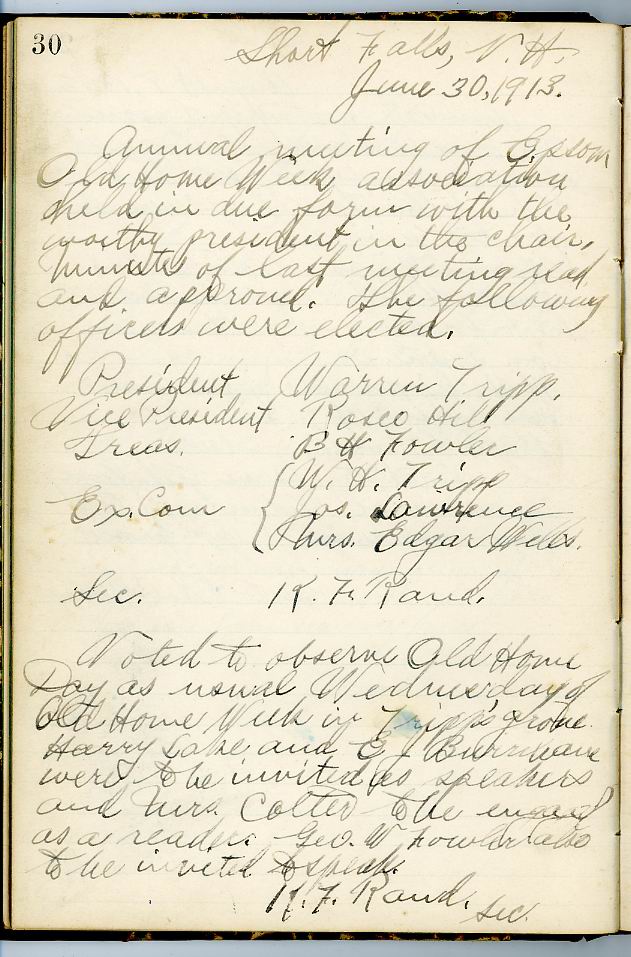 30
Short Falls, N.H.
June 30, 1913.
Annual meeting of Epsom
Old Home Week association
held in due form with the
worthy president in the chair.
Minutes of last meeting read
and approved. The following
officers were elected.
President Warren Tripp.
Vice President Rosco Hill
Treas. B H Fowler
W. H. Tripp
Ex. Com { Jos. Lawrence
Mrs. Edgar Wells.
Sec. K. F. Rand.
Voted to observe Old Home
Day as usual Wednesday of
Old Home Week in Tripp's grove.
Harry Lake and E J Burnham
were to be invited as speakers
and Mrs. Colter to be engaged
as a reader. Geo. W Fowler also
to be invited to speak.
K. F. Rand.
Sec.